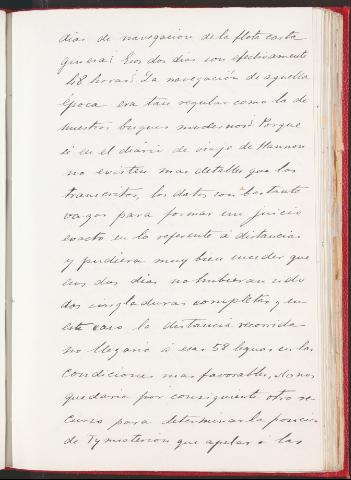 dias de navegacion de la flota carta
ginesa? Esos dos dias son efectivamente
48 horas? La navegación de aquella
época era tan regular como la de
nuestros buques modernos? Porque
si en el diario de viaje de Hannon
no existen mas detalles que los
transcritos, los datos son bastante
vagos para formar un juicio
exacto en lo referente á distancias
y pudiera muy bien suceder que
esos dos dias no hubieran sido
dos singladuras completas, y en
este caso la distancia recorrida
no llegaria á esas 58 leguas en las
condiciones mas favorables. No nos
quedaria por consiguiente otro re
curso para determinar la posición
de Tymiaterion que apelar á las